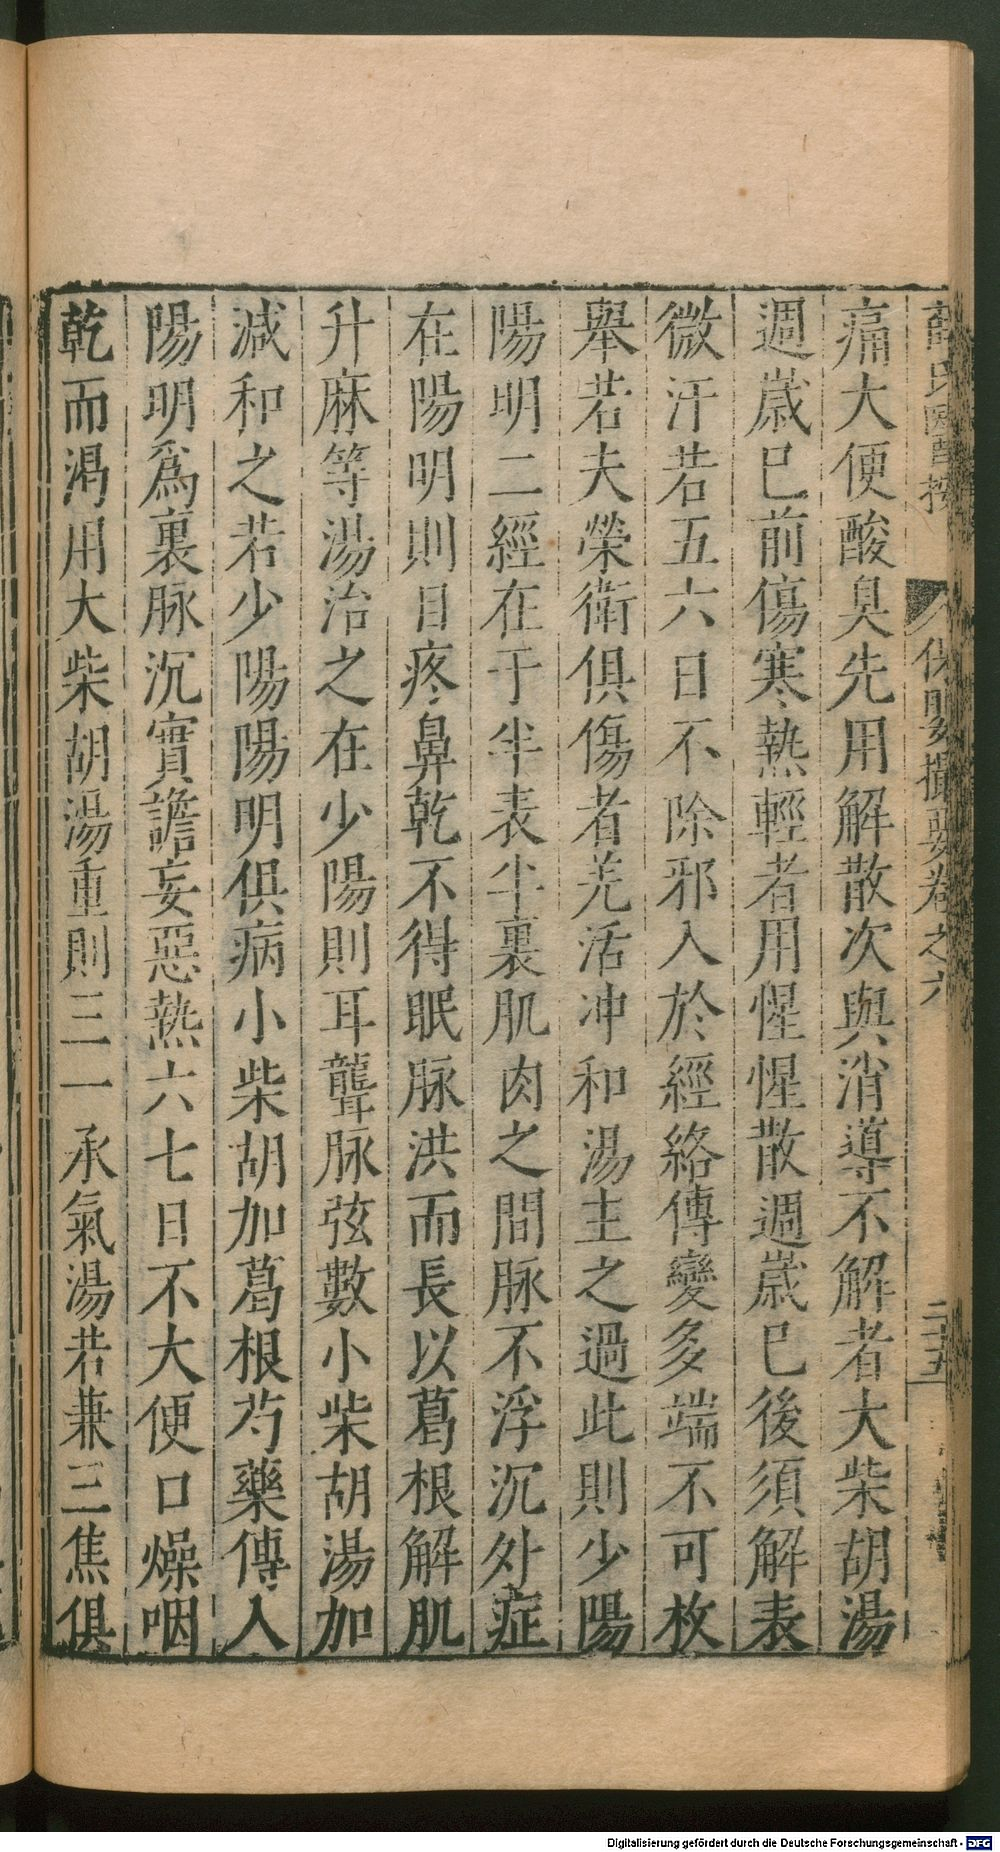 薛氏醫按
保嬰撮要卷之六
二十五
痛大便酸臭先用解散次與消導不解者大柴胡湯
週歲已前傷寒熱輕者用惺惺散週歲已後須解表
微汗若五六日不除邪入於經絡傳變多端不可枚
舉若夫榮衛俱傷者羌活冲和湯主之過此則少陽
陽明二經在于半表半裏肌肉之間脉不浮沉外症
在陽明則目疼鼻乾不得眠脉洪而長以葛根解肌
升麻等湯治之在少陽則耳聾脉弦數小柴胡湯加
減和之若少陽陽明俱病小柴胡加葛根芍藥傳入
陽明爲裏脉沉實譫妄惡熱六七日不大便口燥咽
乾而渴用大柴胡湯重則三一承氣湯若兼三焦俱
Digitalisierung gefördert durch die Deutsche Forschungsgemeinschaft - DFG